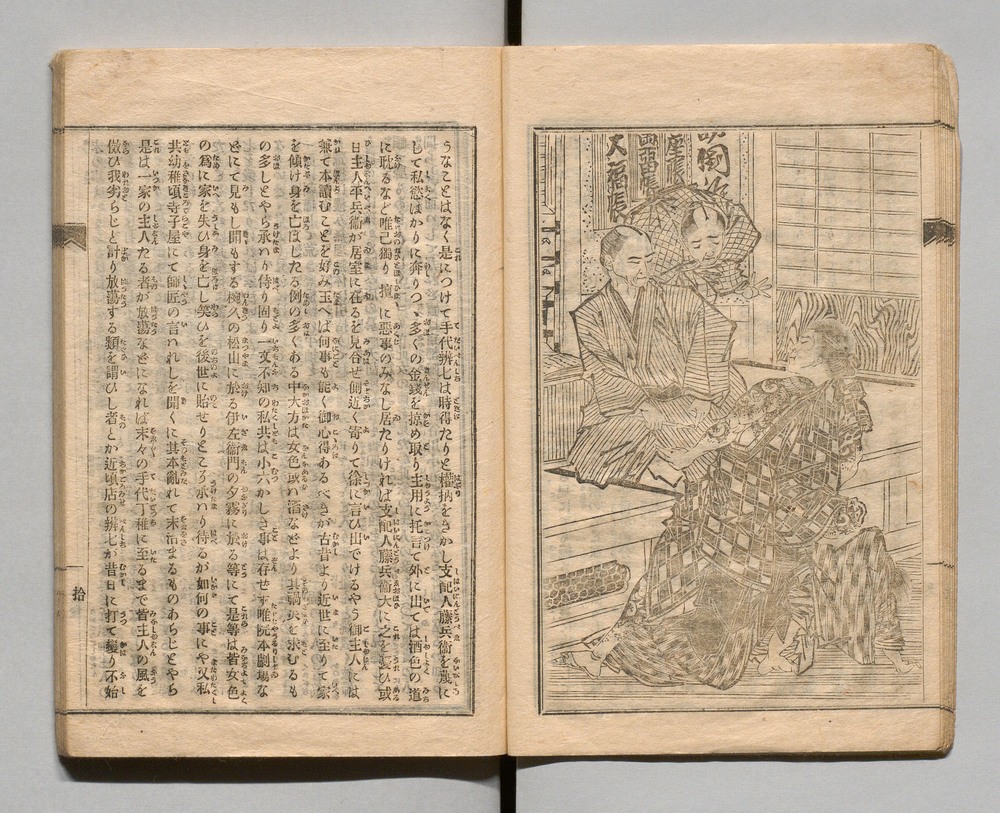 座帳
大福帳
うなことはなく是につけて手代辨七は時得たりと權柄をきかし支配人藤兵衞を蔑に
して私慾はかりに奔りつゝ多くの金錢を掠め取り主用に托言て外に出ては酒色の道
に耽るなど唯己獨り擅に惡事のみなし居たりければ支配人藤兵衞大に之を憂ひ或
日主人平兵衞が居室に在るを見合せ側近く寄りて徐に言ひ出でけるやう御主人には
兼て本讀むことを好み玉へば何事も能く御心得あるべきが古昔より近世に至りて家
を傾け身を亡ぼしたる例の多くある中大方は女色或ハ酒などより其禍災を求むるも
の多しとやら承ハり侍り固り一文不知の私共は小六かしき事は存せず唯院本劇場な
どにて見もし聞もする椀久の松山に於る伊左衞門の夕霧に於る等にて是等は皆女色
の爲に家を失ひ身を亡し笑ひを後世に貽せりところ承ハり待るが如何の事にや又私
共幼稚頃寺子屋にて師匠の言ハれしを聞くに其本亂れて末治まるものあらじとやら
是は一家の主人たる者が放蕩などになれば末々の手代丁稚に至るまで皆主人の風を
傚ひ我劣らじと計り放蕩する類を謂ひし者とか近頃店の辨七が昔日に打て變り不始
拾